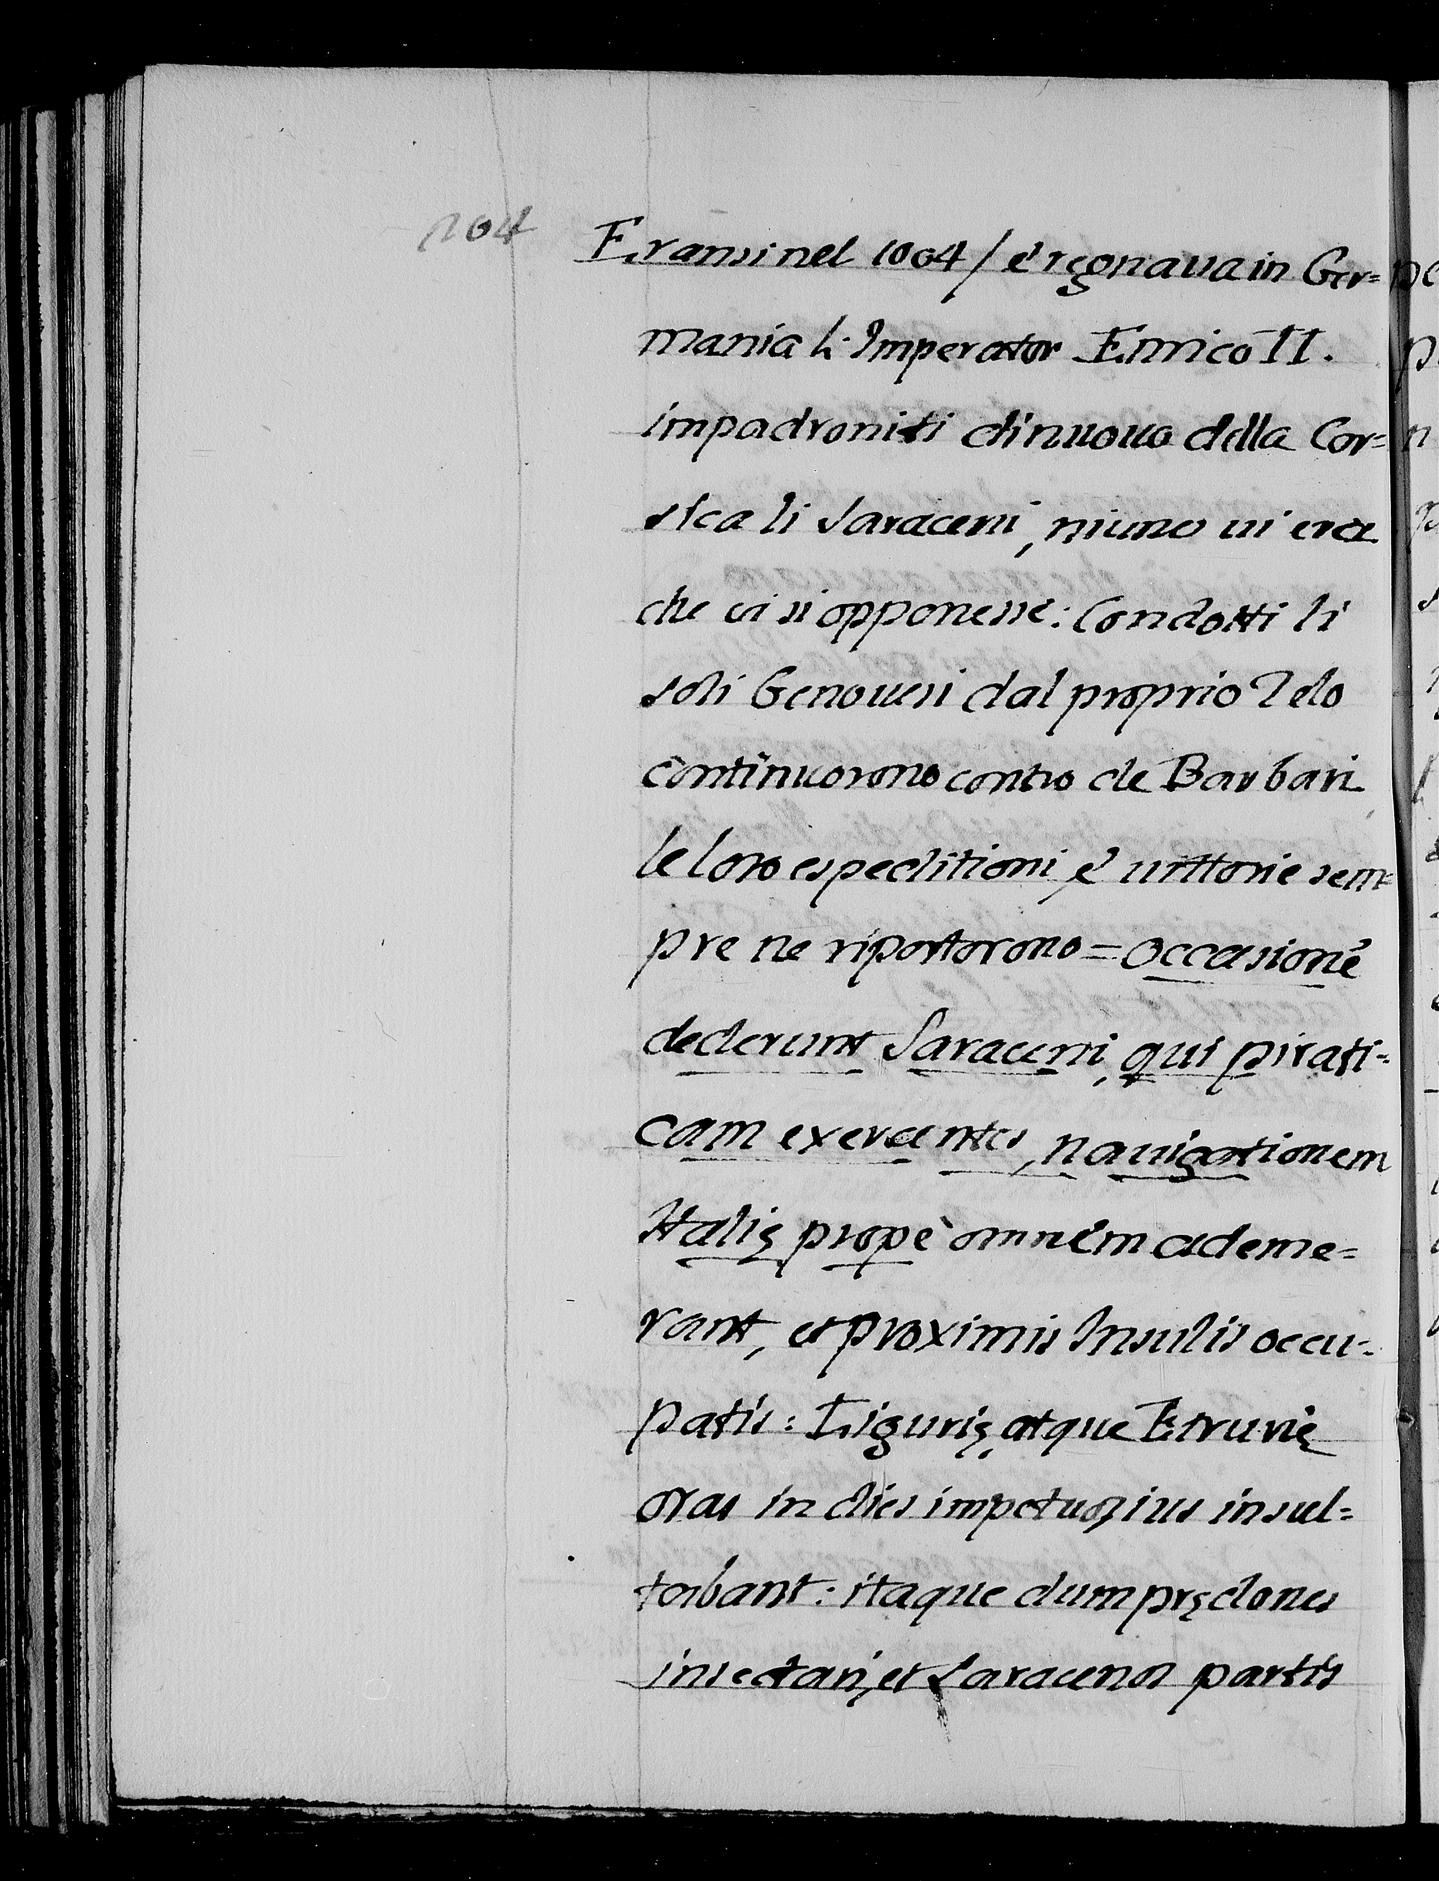 104
Eramsi nel 1004 / è regonaua in Ger=
mania l: Imperator Enrico II.
impadroniti dinuouo della Cor=
sica li Saraceni, niuno ui era
che ui si opponesse: Condotti li
soli Genouesi dal proprio Zelo
continuorono contro de Barbari
le loro espeditioni, è uittorie sem=
pre ne riportorono = Occasionē
dederunt Saraceni, qui pirati=
cam exercentes, nauigationem
Italię propè omnem ademe=
rant, et proximis Insulis occu=
patis: Ligurię, atque Etrurię
oras in dies impetuosius insul=
tabant: itaque dum prędones
insectari, et Saracenos partis